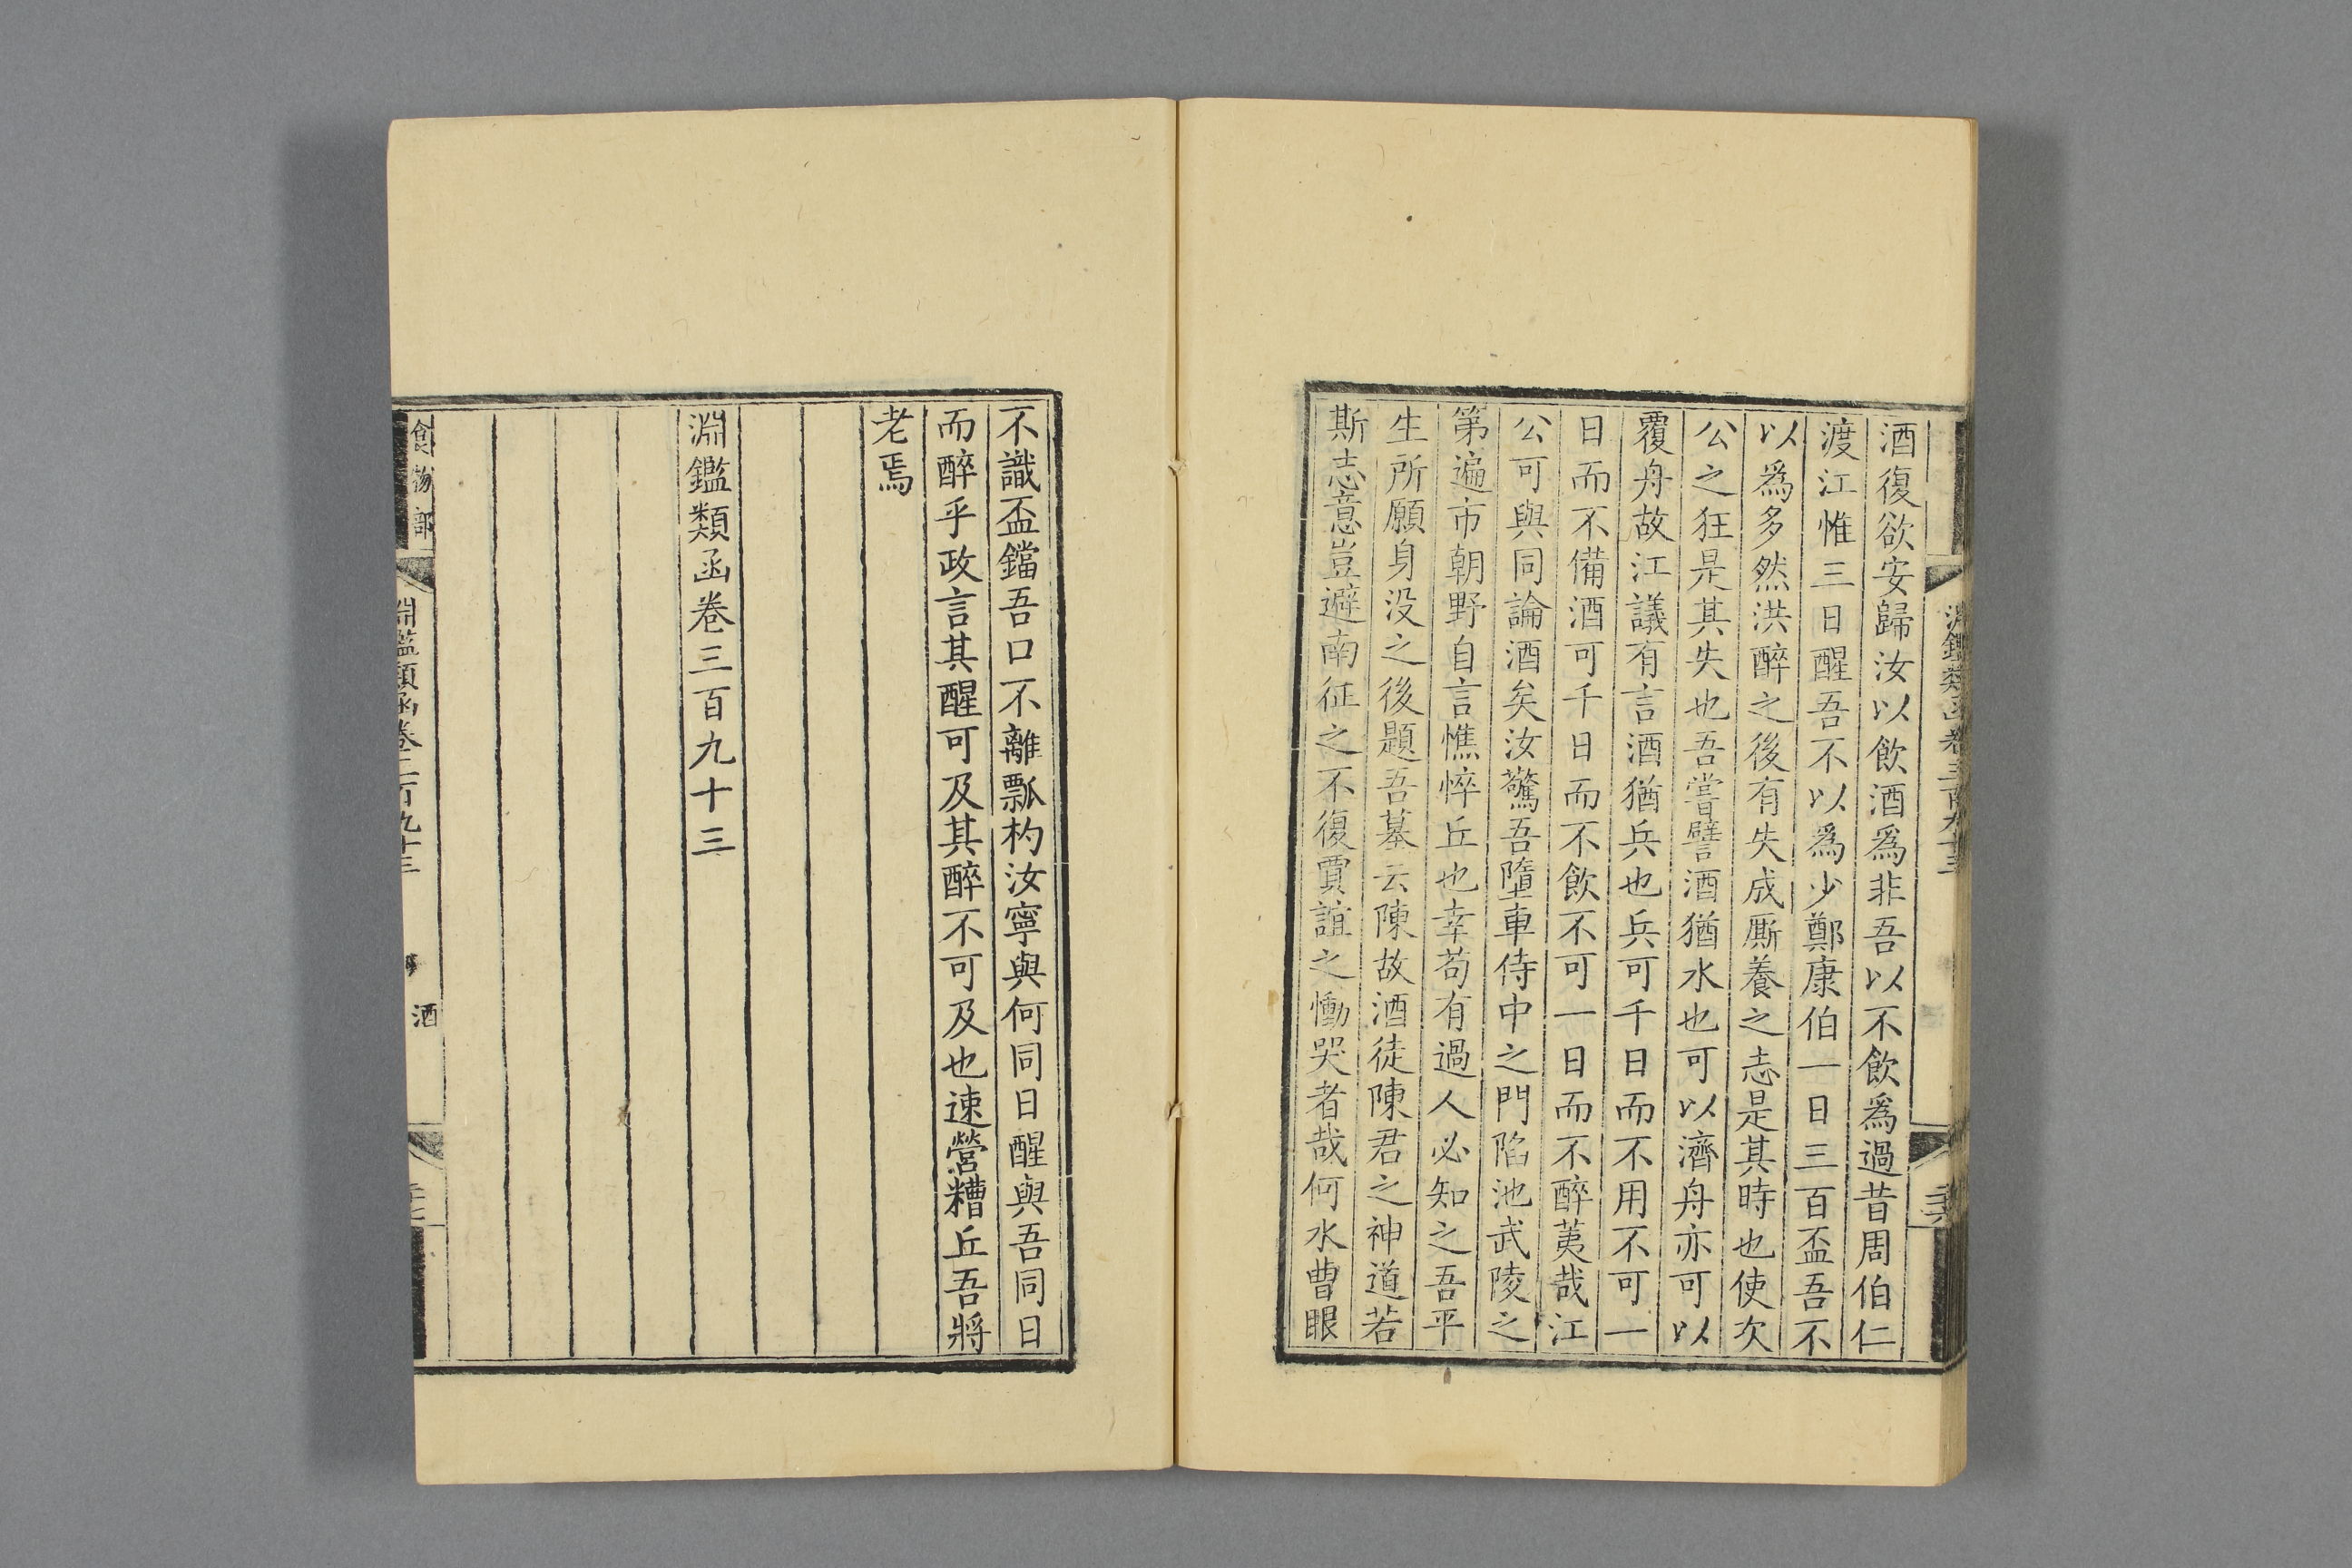 酒復欲安歸汝以飲酒爲非吾以不飲爲過昔周伯仁
渡江惟三日醒吾不以爲少鄭康伯一日三百盃吾不
以爲多然洪醉之後有失成厮養之志是其時也使次
公之狂是其失也吾嘗譬酒猶水也可以濟舟亦可以
覆舟故江議有言酒猶兵也兵可千日而不用不可一
日而不備酒可千日而不飲不可一日而不醉美哉江
公可與同論酒矣汝驚吾墮車侍中之門陷池武陵之
第遍市朝野自言憔悴丘也幸苟有過人必知之吾平
生所願身没之後題吾墓云陳故酒徒陳君之神道若
斯志意豈避南征之不復賈誼之慟哭者哉何水曹眼
不識盃鐺吾口不離瓢杓汝寧與何同日醒與吾同日
而醉乎政言其醒可及其醉不可及也速營糟丘吾將
老焉
淵鑑類函卷三百九十三
食物部
淵鑑類函卷三百九十三
酒